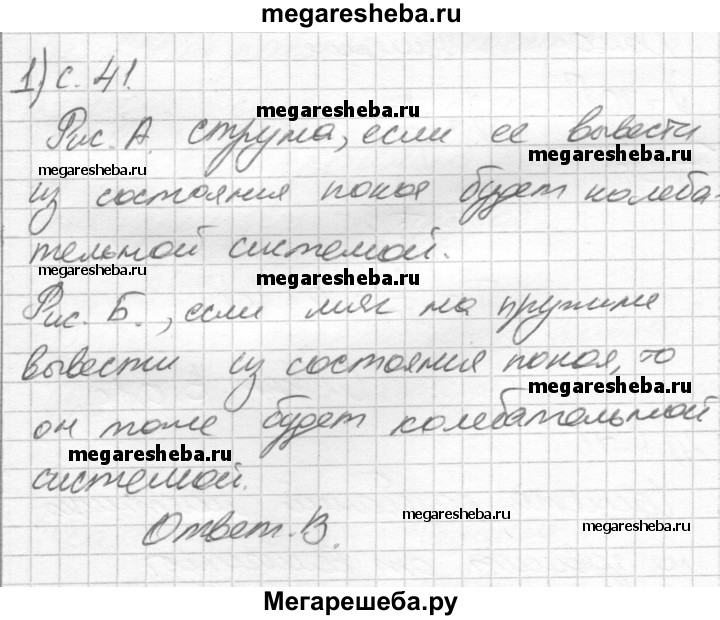 megaresheba.ru
1) с. 41.
megaresheba.ru
Рис. А. струна, если ее вывести
megaresheba.ru
megaresheba.ru
из состояния покоя будет колеба-
тельной системой.
megaresheba.ru
megaresheba.ru
Рис. Б., если мяг на пружине
вывести из состояния покоя, то
megaresheba.ru
он тоже будет колебательной
megaresheba.ru
системой.
megaresheba.ru
Ответ. В.
megaresheba.ru
Мегарешеба.ру